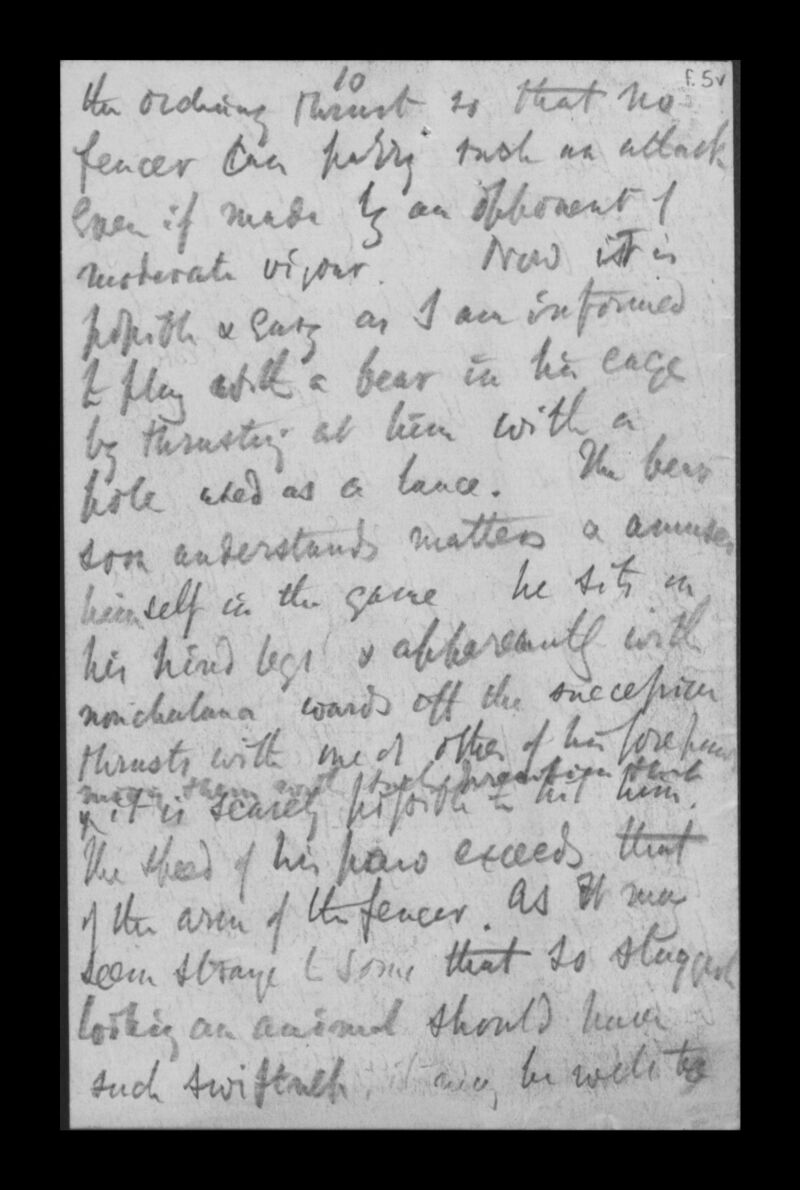 10
f. 5v
the ordinary thrust so that no
fencer can parry such an attack
even if made by an opponent of
moderate vigour. Now it is
possible & easy as I am informed
to play with a bear in his cage
by thrusting at him with a
pole used as a lance. The bear
soon understands matters & amuses
himself in the game he sits on
his hind legs & apparently with
nonchalance wards off the successive
thrusts with one or other of his forepaws
them with such precision that
it is scarcely possible to hit him.
The speed of his paw exceeds that
of the arm of the fencer. As it may
seem strange to some that so sluggish
looking an animal should have
such swiftness, it may be well to